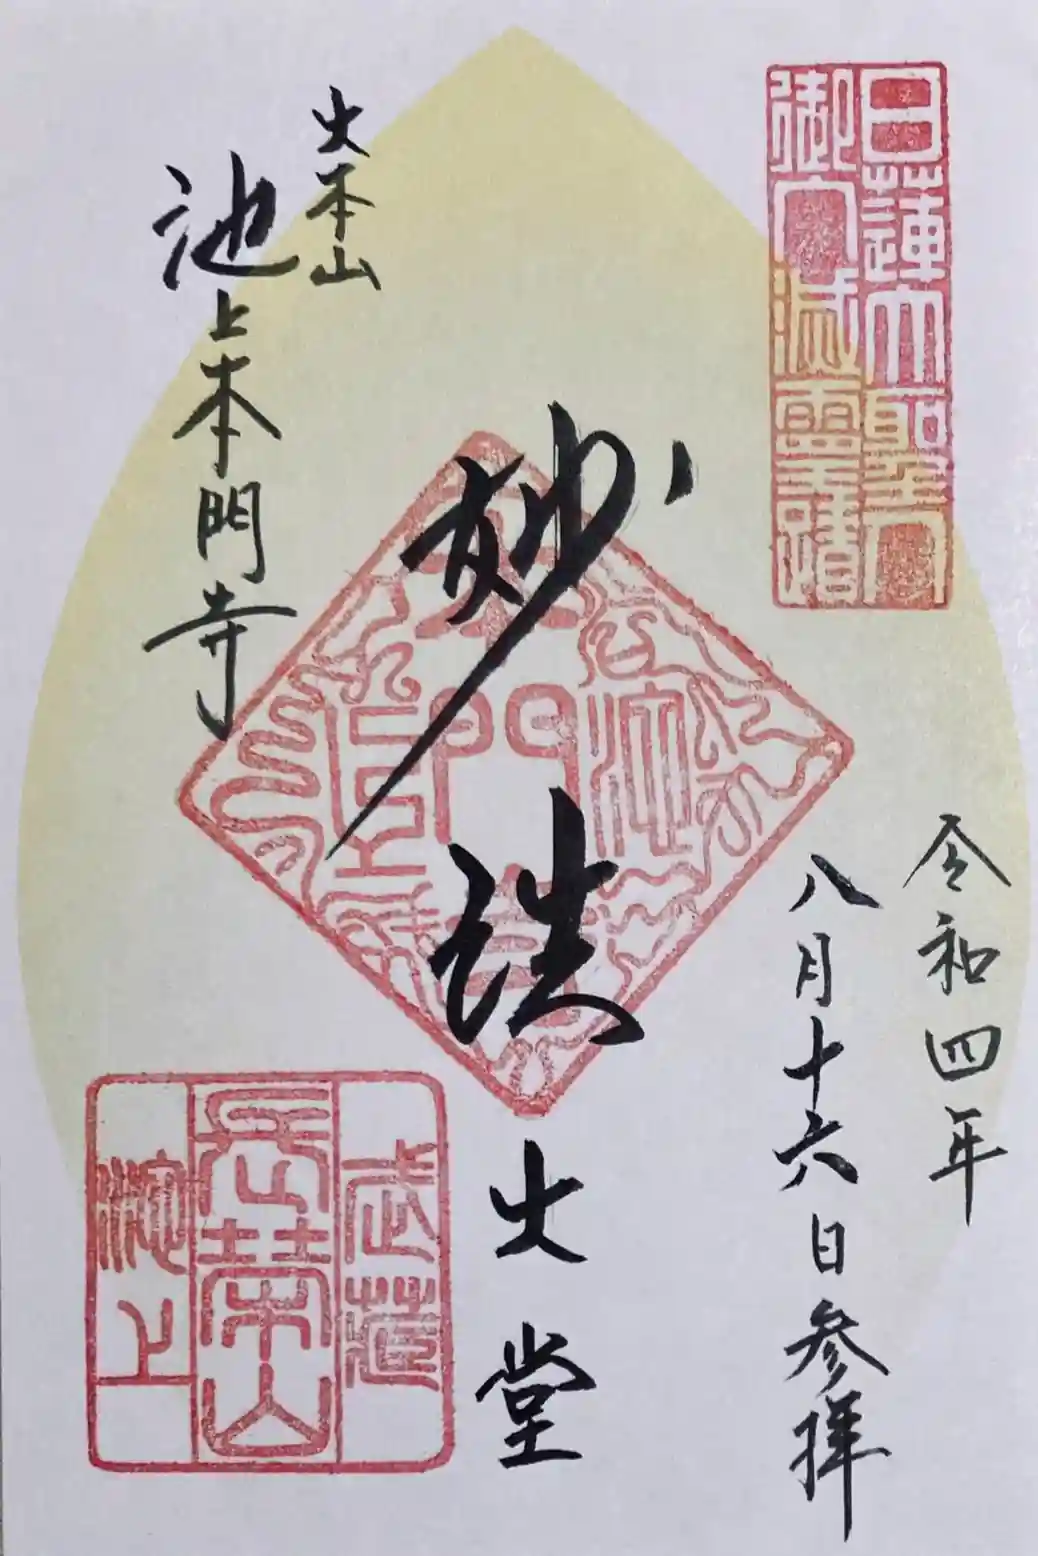 日蓮大聖人
御入滅霊蹟
令和四年
八月十六日参拝
妙法
大堂
大本山
池上本門寺
武蔵
長栄山
池上